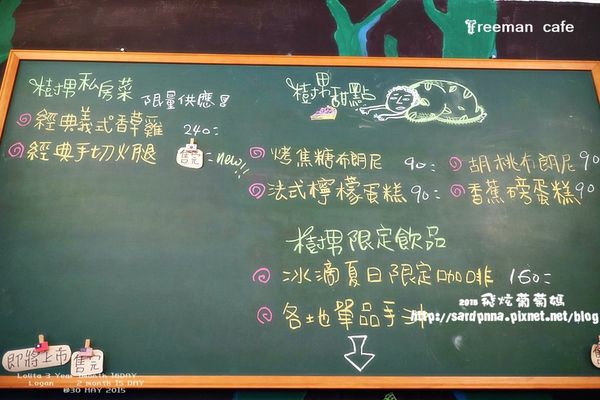 Treeman cafe
樹男私房菜 限量供應
經典義式香草雞 240=
經典手切火腿 售完 = new!!
樹男甜點
烤焦糖布朗尼 90= 胡桃布朗尼 90
法式檸檬蛋糕 90= 香蕉磅蛋糕 90
樹男限定飲品
冰滴夏日限定咖啡 150=
各地單品手沖
2015 飛炫葡萄媽
http://sardpnna.pixnet.net/blog
即將上市 售完
Lolita 3 Year 16DAY
Logan 2 month 15 DAY
@30 MAY 2015